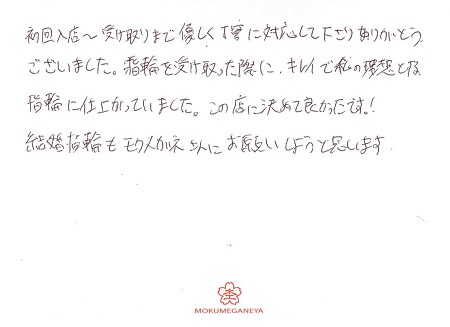 初回入店～受け取りまで優しく丁寧に対応して下さりありがとう
ございました。指輪を受け取った際に、キレイで私の理想とな
指輪に仕上がっていました。この店に決めて良かったです！
結婚指輪もモクメガネさんにお願いしようと思います
MOKUMEGANEYA